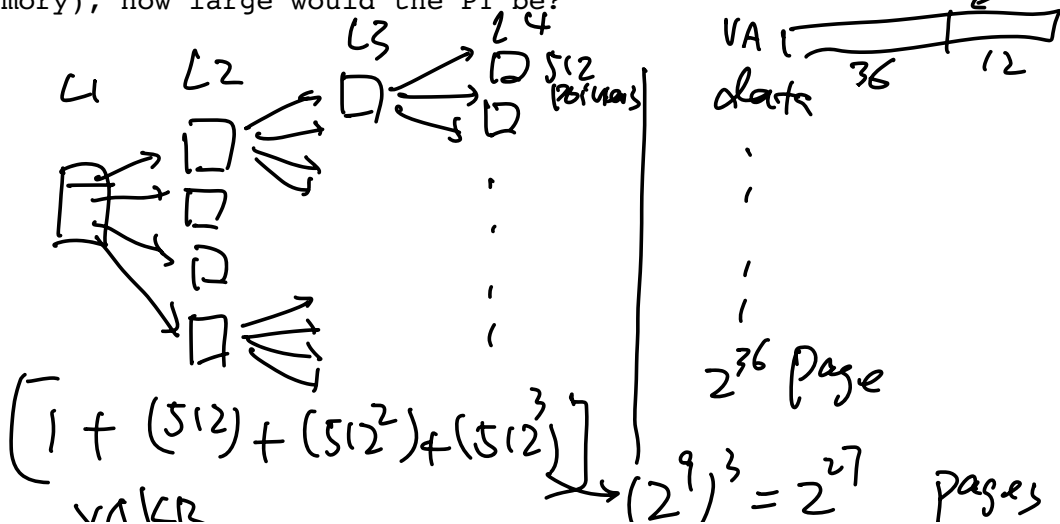 mory), how large would the PT be?
L1 L2 L3 L4
512
VA
36 12
data
2^36 page
[1 + (512) + (512^2) + (512^3)]
(2^9)^3 = 2^27 pages
x4KB